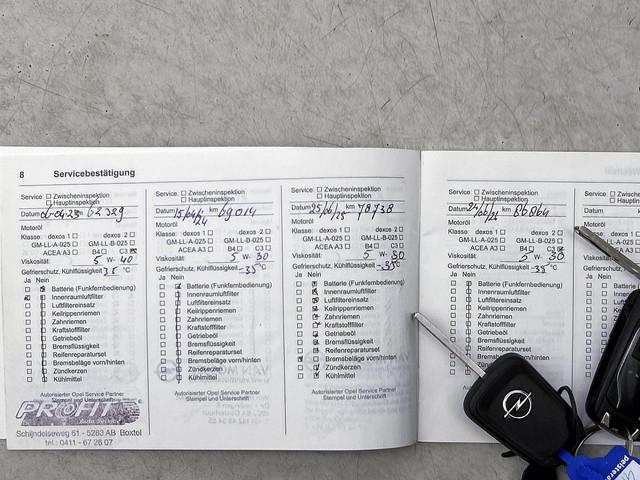 8 Servicebestätigung
Service: ☐ Zwischeninspektion
☐ Hauptinspektion
Datum km 62 329
Motoröl
Klasse: dexos 1 ☐ dexos 2 ☐
GM-LL-A-025 ☐ GM-LL-B-025 ☐
ACEA A3 ☐ B4 ☐ C3
Viskosität: 5 W- 40
Gefrierschutz, Kühlflüssigkeit 35 °C
Ja Nein
Batterie (Funkfernbedienung)
Innenraumluftfilter
Luftfiltereinsatz
Keilrippenriemen
Zahnriemen
Kraftstofffilter
Getriebeöl
Bremsflüssigkeit
Reifenreparaturset
Bremsbeläge vorn/hinten
Zündkerzen
Kühlmittel
Autorisierter Opel Service Partner
Stempel und Unterschrift
PROFIT
Schijndelseweg 61 - 5283 AB Boxtel
tel.: 0411 - 67 26 07
Service: ☐ Zwischeninspektion
☐ Hauptinspektion
Datum 15/04/24 km 69014
Motoröl
Klasse: dexos 1 ☐ dexos 2 ☐
GM-LL-A-025 ☐ GM-LL-B-025 ☐
ACEA A3 ☐ B4 ☐ C3
Viskosität: 5 W- 30
Gefrierschutz, Kühlflüssigkeit -35 °C
Ja Nein
Batterie (Funkfernbedienung)
Innenraumluftfilter
Luftfiltereinsatz
Keilrippenriemen
Zahnriemen
Kraftstofffilter
Getriebeöl
Bremsflüssigkeit
Reifenreparaturset
Bremsbeläge vorn/hinten
Zündkerzen
Kühlmittel
Autorisierter Opel Service Partner
Stempel und Unterschrift
Service: ☐ Zwischeninspektion
☐ Hauptinspektion
Datum 25/06/25 km 78738
Motoröl
Klasse: dexos 1 ☐ dexos 2 ☐
GM-LL-A-025 ☐ GM-LL-B-025 ☐
ACEA A3 ☐ B4 ☐ C3
Viskosität: 5 W- 30
Gefrierschutz, Kühlflüssigkeit -35 °C
Ja Nein
Batterie (Funkfernbedienung)
Innenraumluftfilter
Luftfiltereinsatz
Keilrippenriemen
Zahnriemen
Kraftstofffilter
Getriebeöl
Bremsflüssigkeit
Reifenreparaturset
Bremsbeläge vorn/hinten
Zündkerzen
Kühlmittel
Autorisierter Opel Service Partner
Stempel und Unterschrift
Service: ☐ Zwischeninspektion
☐ Hauptinspektion
Datum km 86864
Motoröl
Klasse: dexos 1 ☐ dexos 2 ☐
GM-LL-A-025 ☐ GM-LL-B-025 ☐
ACEA A3 ☐ B4 ☐ C3
Viskosität: 5 W- 30
Gefrierschutz, Kühlflüssigkeit -35 °C
Ja Nein
Batterie (Funkfernbedienung)
Innenraumluftfilter
Luftfiltereinsatz
Keilrippenriemen
Zahnriemen
Kraftstofffilter
Getriebeöl
Bremsflüssigkeit
Service:
Datum
Motoröl
Klasse:
GM-LL
Viskosität: